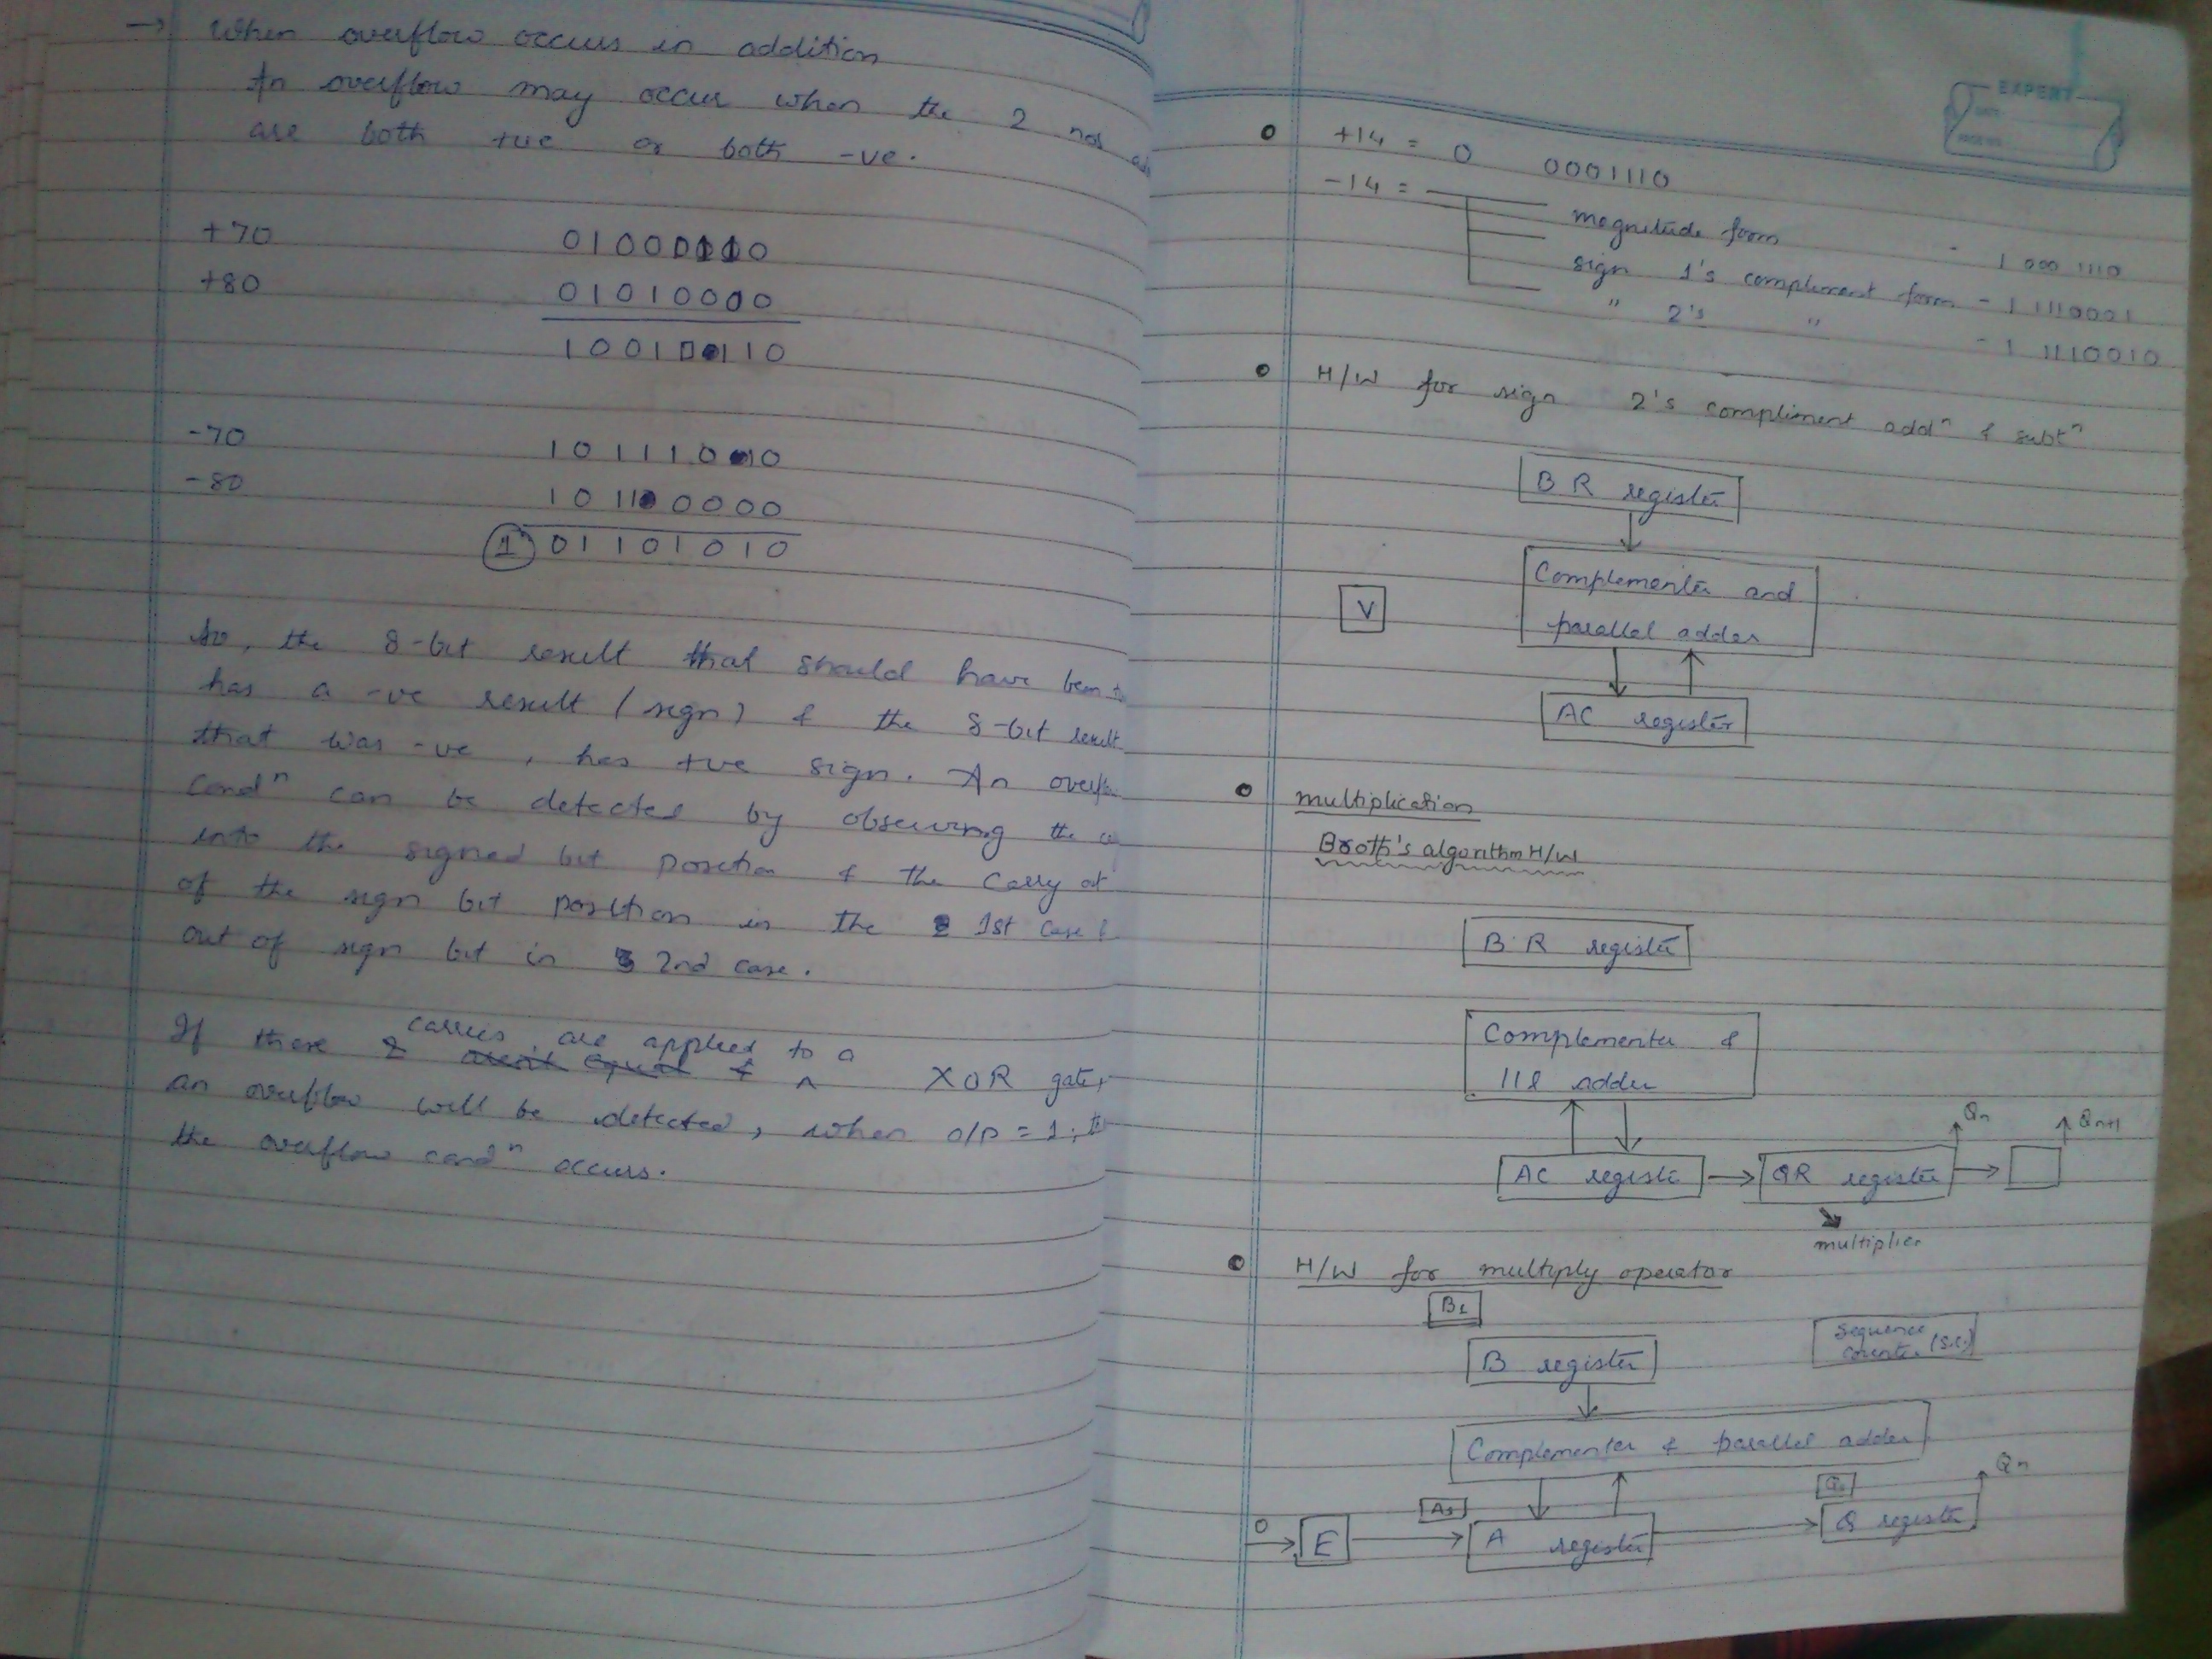 → When overflow occurs in addition
An overflow may occur when the 2 nos
are both +ve or both -ve.
+70 01000110
+80 01010000
10010110
-70 10111010
-80 10110000
1 01101010
So, the 8-bit result that should have been
has a -ve result (sign) & the 8-bit result
that was -ve, has +ve sign. An
condⁿ can be detected by observing the
into the signed bit position & the carry
of the sign bit position in the 1st case
out of sign bit in 2nd case.
carries are applied to a
If these 2 XOR gate,
an overflow will be detected, when o/p = 1,
the overflow condⁿ occurs.
EXPERT
+14 = 0 0001110
-14 =
magnitude form - 1 000 1110
sign 1's compliment form - 1 1110001
" 2's " - 1 1110010
H/W for sign 2's compliment addⁿ & subtⁿ
BR register
Complementer and
parallel adder
V
AC register
multiplication
Booth's algorithm H/W
BR register
Complementer &
11l adder
Qn Qn+1
AC register → QR register →
multiplier
H/W for multiply operator
Bs
Sequence
counter (S.C.)
B register
Complementer & parallel adder
As Qs Qn
0 → E → A register → Q register